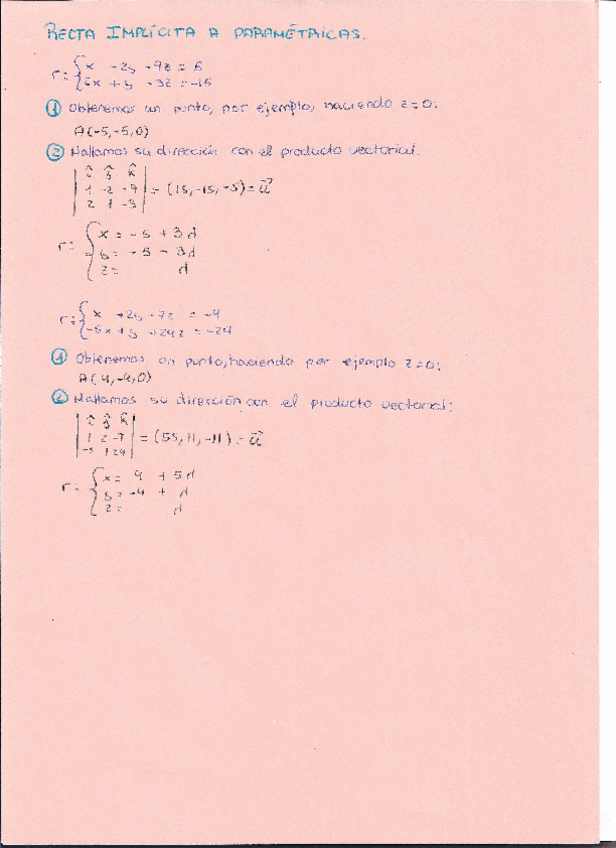 RECTA IMPLÍCITA A PARAMÉTRICAS.
r:{x -2y -9z = 5
2x +y -3z = -15
① Obtenemos un punto, por ejemplo, haciendo z=0:
A(-5,-5,0)
② Hallamos su dirección con el producto vectorial.
|î ĵ k̂
1 -2 -9
2 1 -3| = (15,-15,-5) = u⃗
r: {x = -5 + 3λ
y = -5 - 3λ
z = λ
r:{x +2y -7z = -4
-5x +y +24z = -24
① Obtenemos un punto, haciendo por ejemplo z=0:
A(4,-4,0)
② Hallamos su dirección con el producto vectorial:
|î ĵ k̂
1 2 -7
-5 1 24| = (55,11,-11) = u⃗
r: {x = 4 + 5λ
y = -4 + λ
z = λ